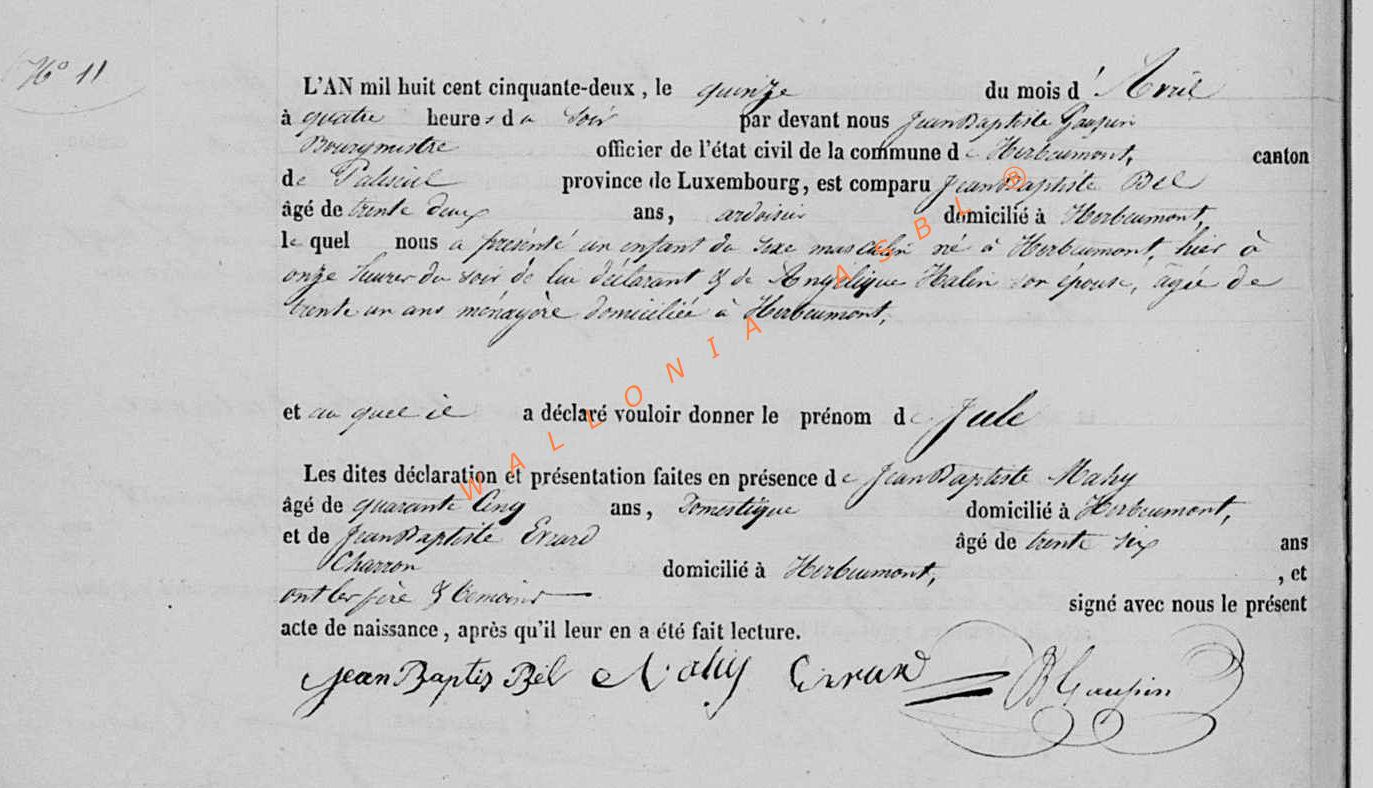 N° 11
L'AN mil huit cent cinquante-deux, le quinze du mois d' Avril
à quatre heures du soir par devant nous Jean Baptiste Gaupin
Bourgmestre officier de l'état civil de la commune de Herbeumont, canton
de Paliseul province de Luxembourg, est comparu Jean Baptiste Bel
âgé de trente deux ans, ardoisier domicilié à Herbeumont,
lequel nous a présenté un enfant du sexe masculin né à Herbeumont, hier à
onze heures du soir de lui déclarant & de Angélique Halin son épouse, agée de
trente un ans ménagère domiciliée à Herbeumont,
et au quel il a déclaré vouloir donner le prénom de Jule
Les dites déclaration et présentation faites en présence de Jean Baptiste Mahy
âgé de quarante Cinq ans, Domestique domicilié à Herbeumont,
et de Jean Baptiste Evrard âgé de trente six ans
Charron domicilié à Herbeumont, , et
ont les père & témoins signé avec nous le présent
acte de naissance, après qu'il leur en a été fait lecture.
Jean Baptis Bel Mahy Evrard JB Gaupin
WALLONIA ASBL ®